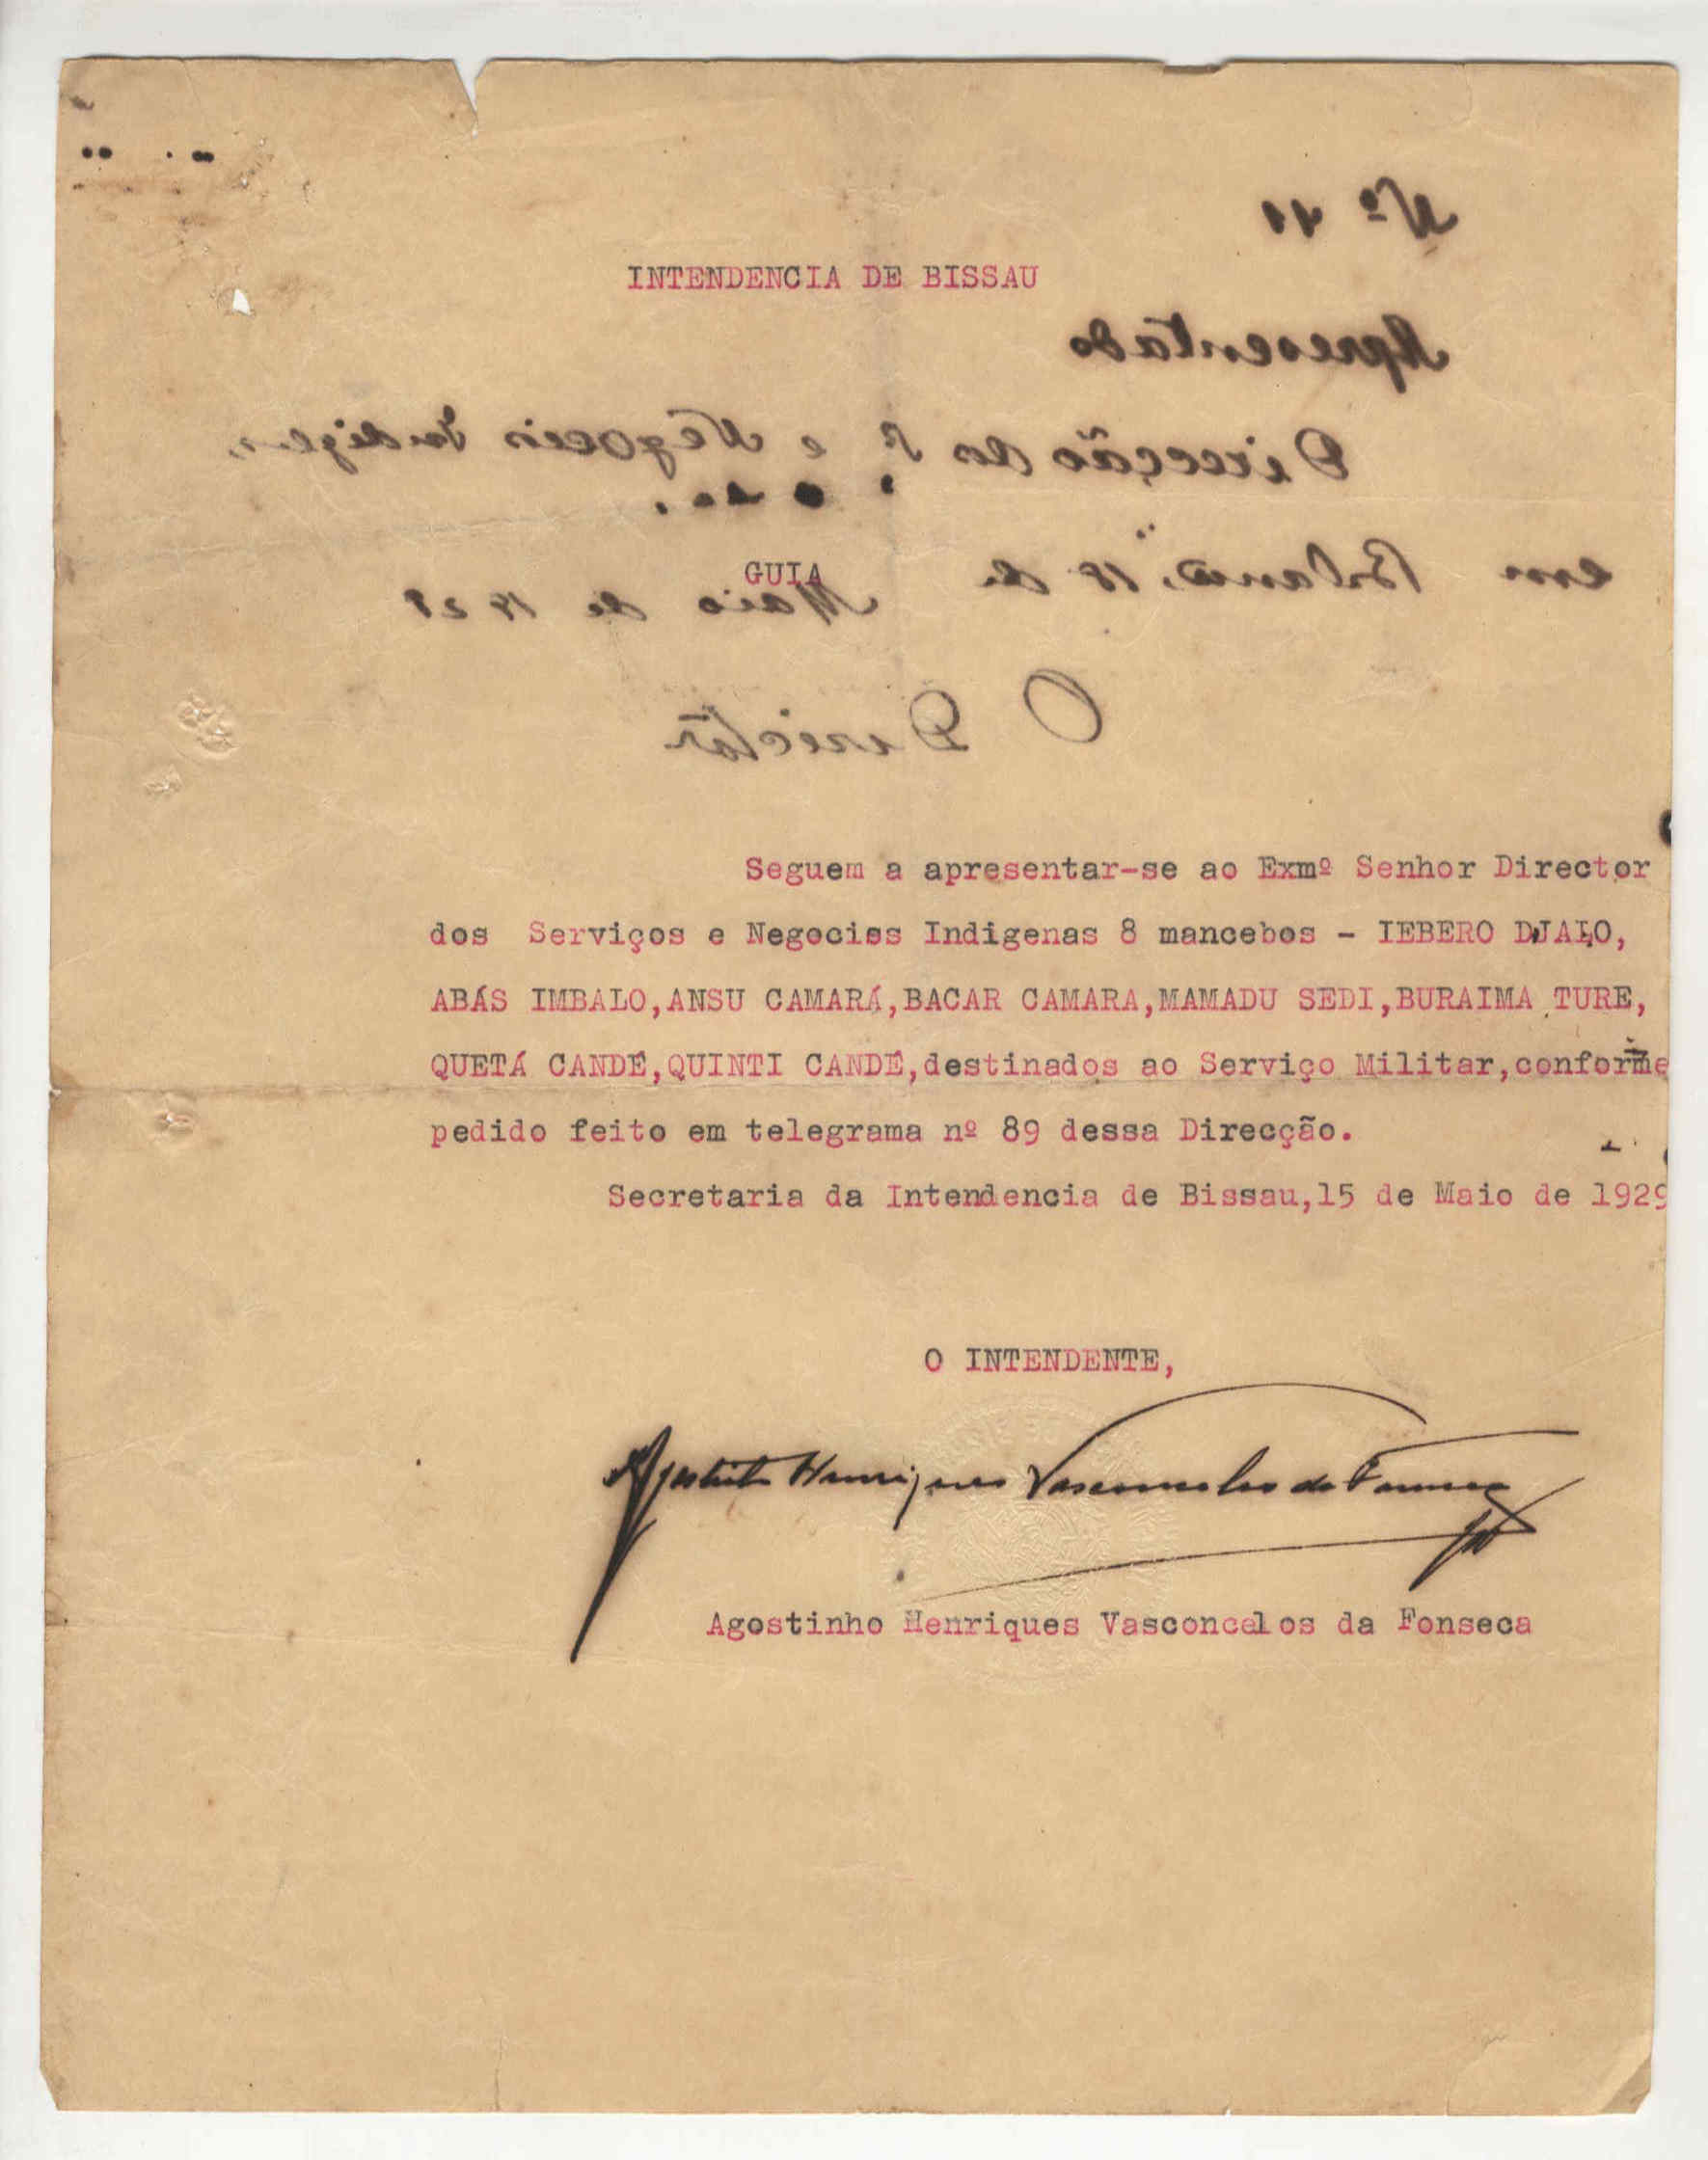 Nº 11
INTENDENCIA DE BISSAU
Apresentado
Direcção dos S. e Negocios Indigenas
em Bolama, 18 de
GUIA
Maio de 1929
O Director
Seguem a apresentar-se ao Exmº Senhor Director
dos Serviços e Negocios Indigenas 8 mancebos - IEBERO DJALO,
ABÁS IMBALO,ANSU CAMARÁ,BACAR CAMARA,MAMADU SEDI,BURAIMA TURE,
QUETÁ CANDÉ,QUINTI CANDÉ,destinados ao Serviço Militar,conforme
pedido feito em telegrama nº 89 dessa Direcção.
Secretaria da Intendencia de Bissau,15 de Maio de 1929
O INTENDENTE,
Agostinho Henriques Vasconcelos da Fonseca
Agostinho Henriques Vasconcelos da Fonseca